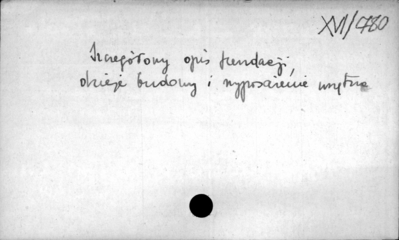 XVI/C780
Szczegółowy opis fundacji,
dzieje budowy i wyposażenie wnętrza